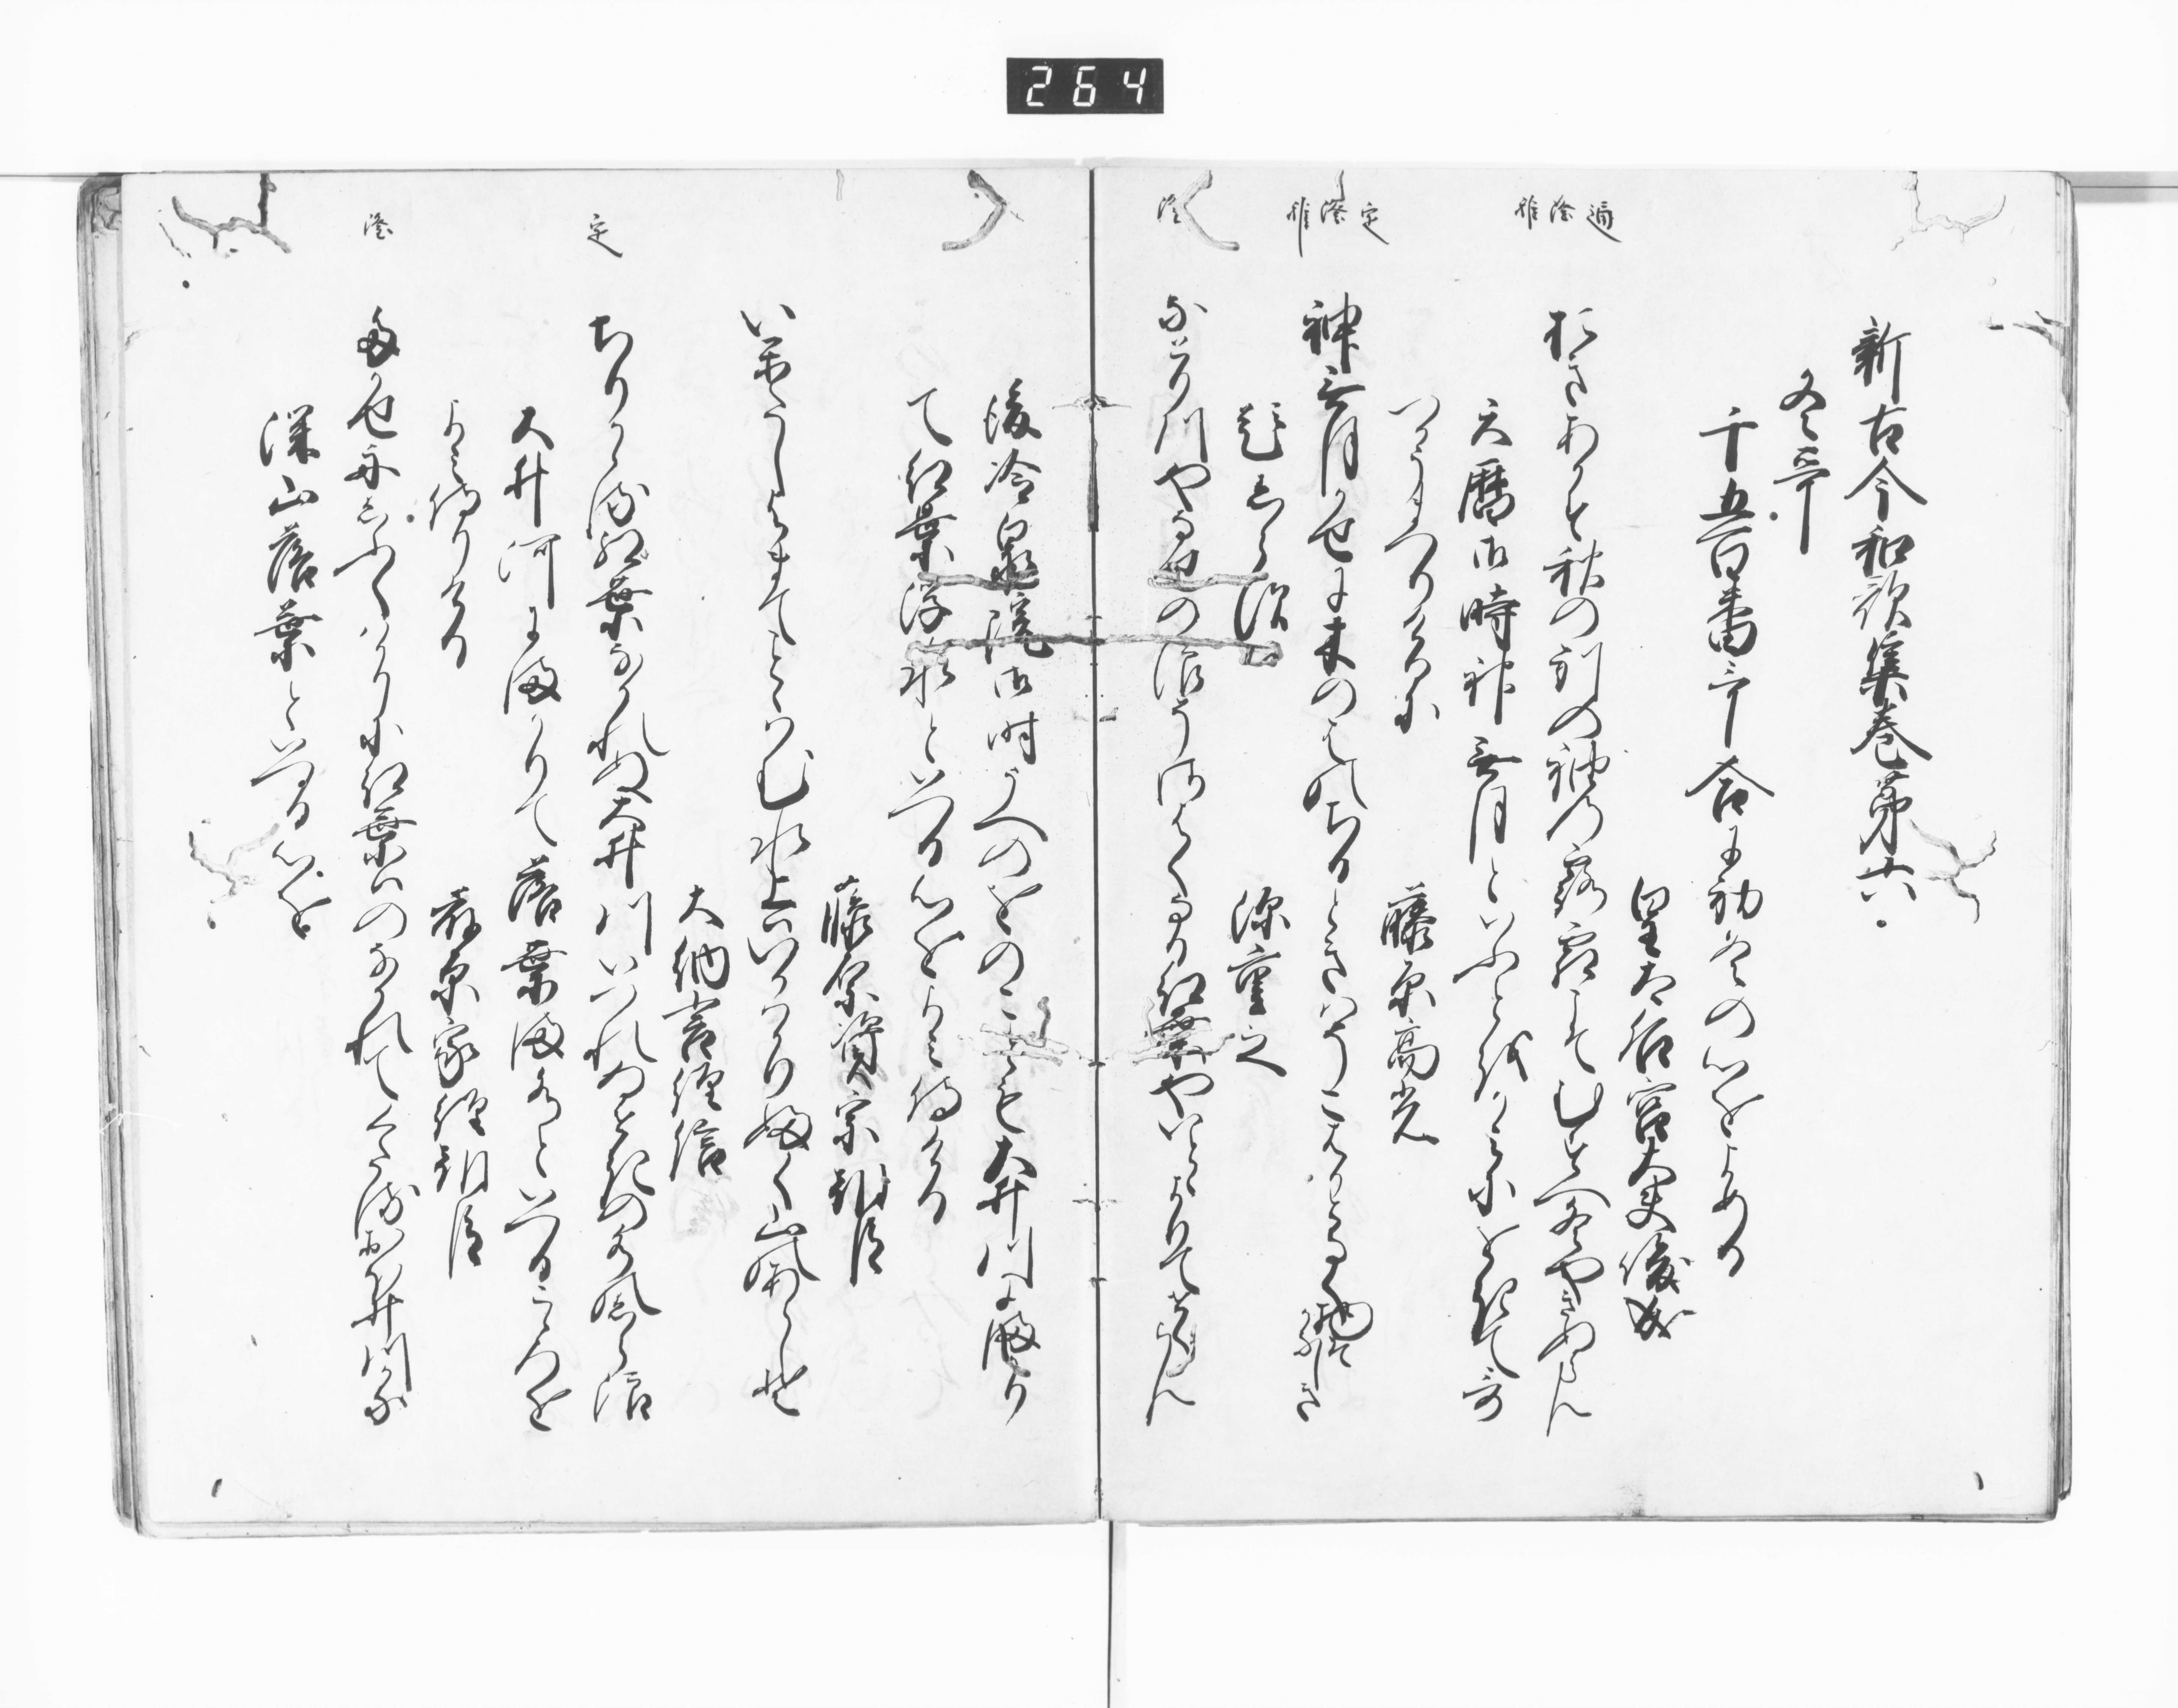 264
新古今和歌集巻第六
冬哥
千五百番哥合に初冬の心をよめる
皇太后宮大夫俊成
おきあかす秋の別の袖の露霜こそむすへ冬やきぬらん
天暦御時神無月といふことを上にをきて哥
つかうまつりけるに
藤原高光
神無月風に木のはのちるときはそこはかとなく物そかなしき
題しらす
源重之
なとり川やなせの浪そさはくなる紅葉やいとゝよりてせくらん
後冷泉院御時うへのをのことも大井川にまかり
て紅葉浮水といへる心をよみ侍ける
藤原資宗朝臣
いかたしよまてことゝはむ水上はいかはかり吹く山の嵐そ
大納言経信
ちりかゝる紅葉なかれぬ大井川いつれ井せきの水のしからみ
大井河にまかりて落葉満水といへるこゝろを
よみ侍りける
藤原家経朝臣
たかせ舟しふくはかりに紅葉はのなかれてくたる大井川かな
深山落葉といへる心を
遍 隆 雅
定 隆 雅
隆
定
隆